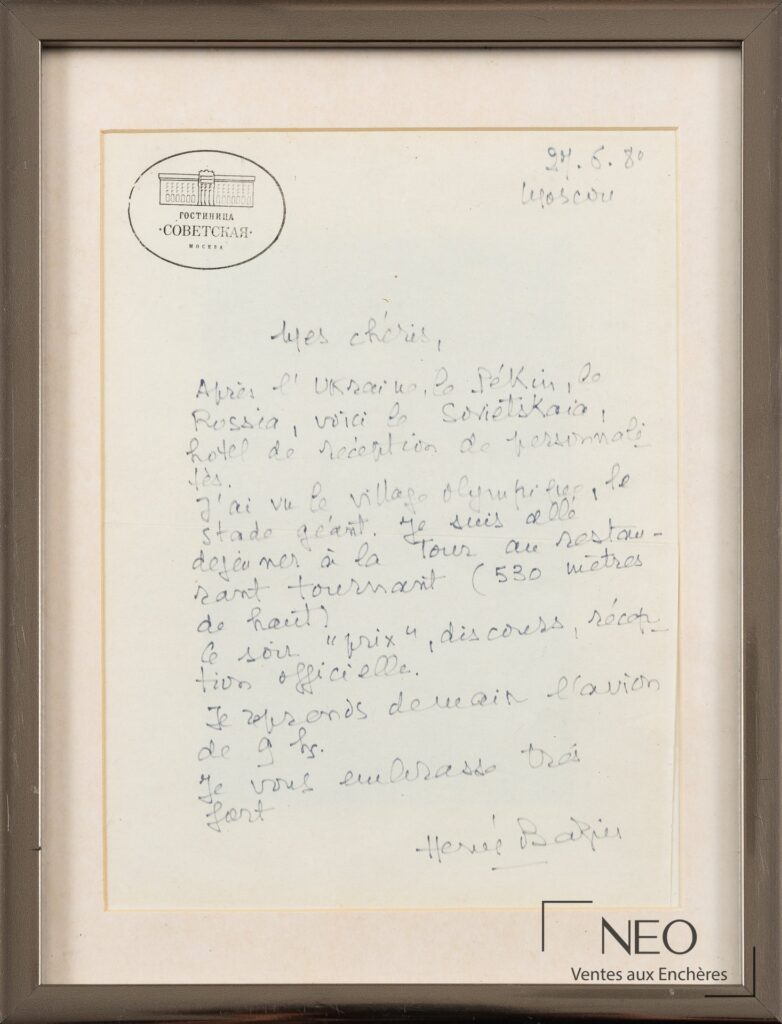 ГОСТИНИЦА
·СОВЕТСКАЯ·
МОСКВА
27.6.80
Moscou
Mes chéris,
Après l'Ukraine, le Pékin, le
Russia, voici le Soviétskaia,
hotel de réception de personnali
tés.
J'ai vu le village olympique, le
stade géant. Je suis allé
dejeuner à la Tour au restau-
rant tournant (530 mètres
de haut)
Ce soir "prix", discours, récep-
tion officielle.
Je reprends demain l'avion
de 9 hs.
Je vous embrasse très
fort
Hervé Bazin
NEO
Ventes aux Enchères